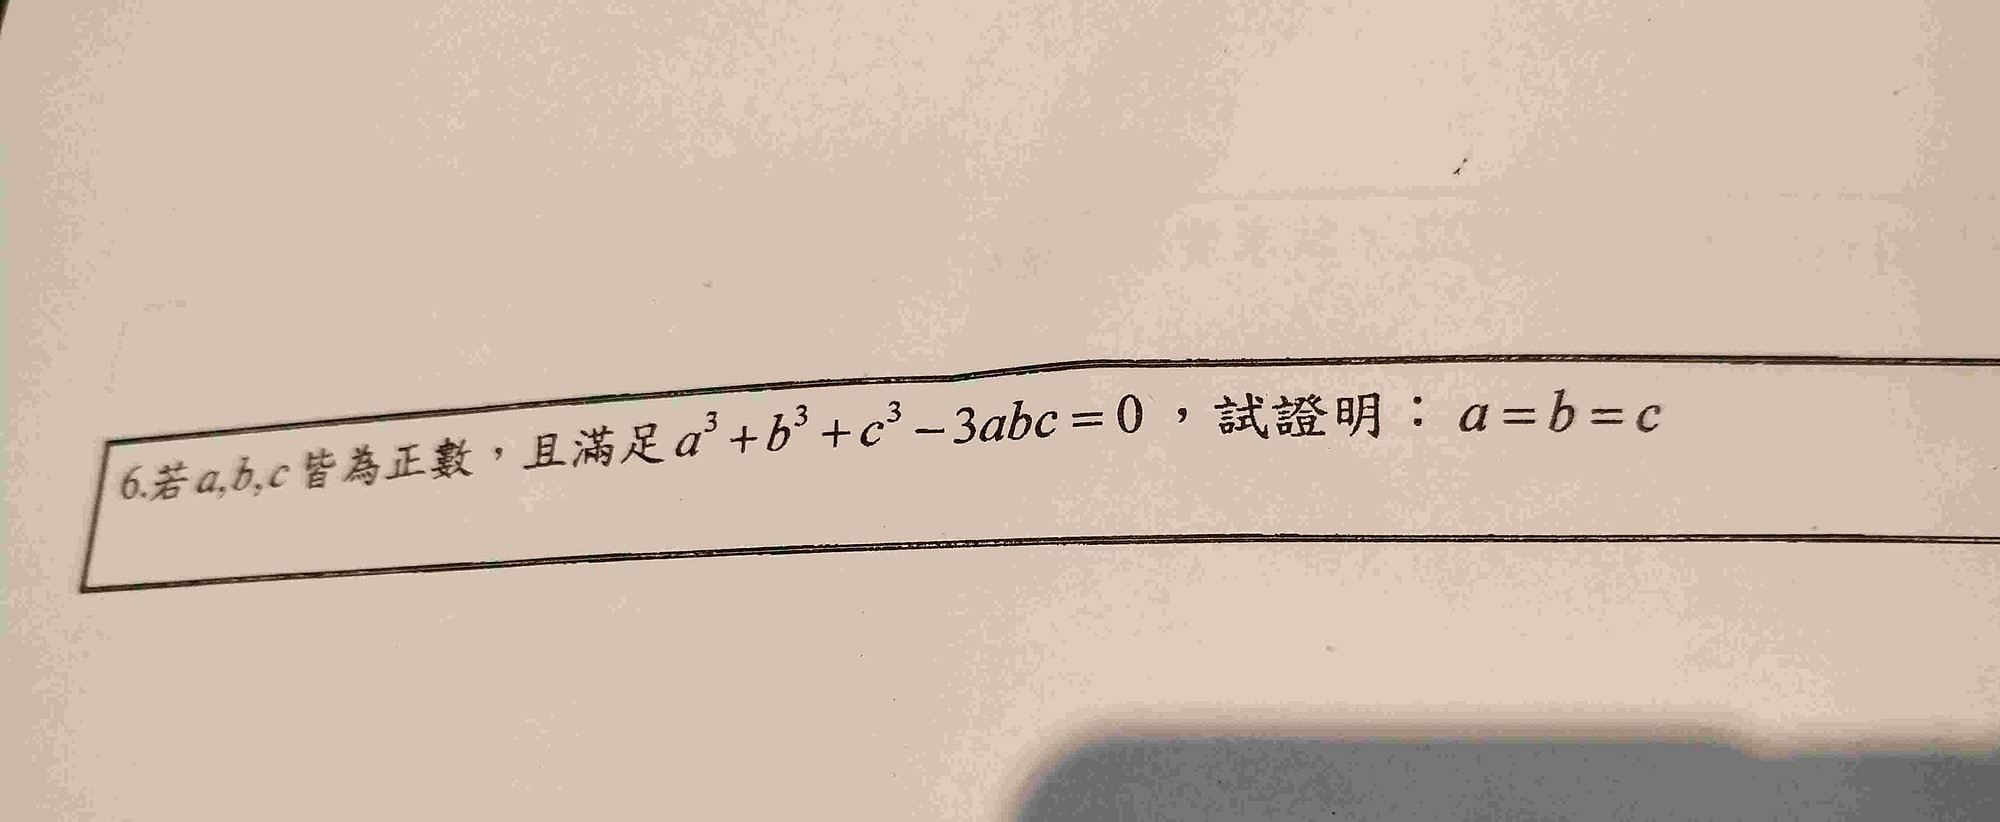 6.若a,b,c皆為正數，且滿足a³+b³+c³−3abc=0，試證明：a=b=c